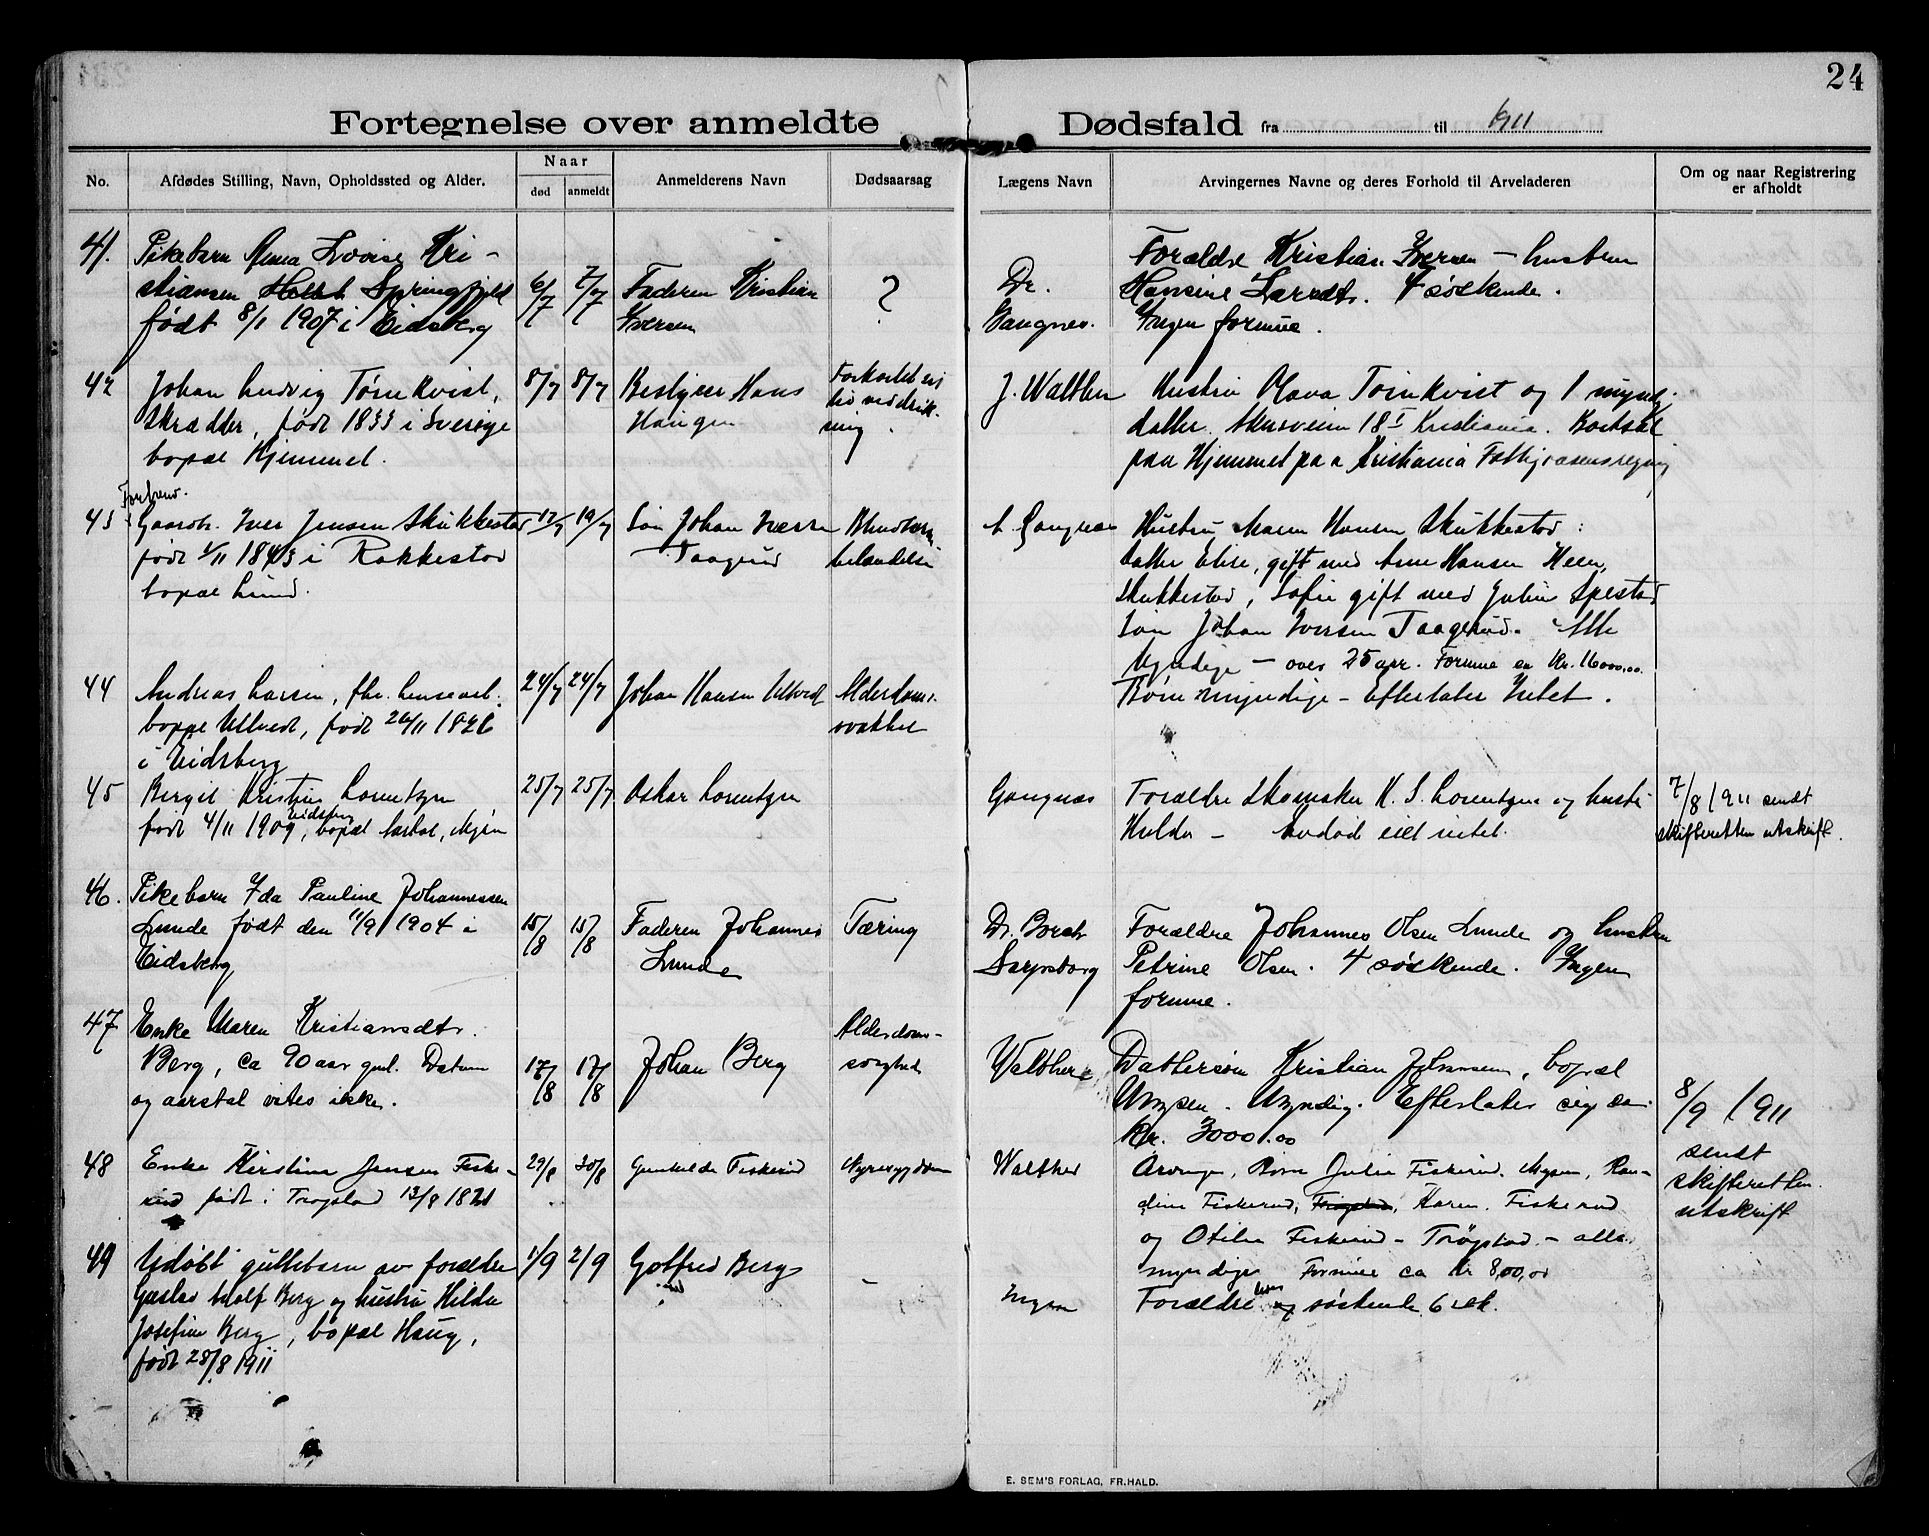 24
Fortegnelse over anmeldte Dødsfald fra til 1911
No.
Afdødes Stilling, Navn, Opholdssted og Alder.
Naar
død
anmeldt
Anmelderens Navn
Dødsaarsag
Lægens Navn
Arvingernes Navne og deres Forhold til Arveladeren
Om og naar Registrering
er afholdt
41. Pikebarn Anna Lovise Kri-
stiansen Springfjeld
født 8/1 1907 i Eidsberg
6/7
7/7
Faderen Kristian
Iversen
?
Dr.
Gangnes.
Forældre Kristian Iversen – hustru
Hansine Larsdtr. 4 søskende.
Ingen formue.
42 Johan Ludvig Tørnkvist,
Skrædder, født 1833 i Sverige
bopæl Hjemmet.
8/7
8/7
Bestyrer Hans
Haugen
J. Walther
Hustru Olava Tørnkvist og 1 myndig
datter. 18 I Kristiania. Bortsat
paa Hjemmet paa Kristiania Fattigvæsens regning
43 Forhenv.
Gaardb. Iver Jensen Skukkestad
født 1/11 1843 i Rakkestad
bopæl Lund.
17/7
19/7
Søn Johan Iversen
Taagerud
Blindtarm
betændelse
A. Gangnæs
Hustru Maren Hansen Skukkestad:
Datter Elise, gift med Arne Hansen Heen,
Skukkestad, Sofie gift med Julius Spestad
Søn Johan Iversen Taagerud. Alle
Myndige – over 25 aar. Formue en Kr. 16000.00.
44 Andreas Larsen, fhv.
boppe Ullvedt, født 20/11 1826
i Eidsberg
24/7
24/7
Johan Hansen Ulved
Alderdoms-
svakhet
Børn myndige – Efterlater Intet.
45 Bergit Kristine Lorentzen
født 4/11 1909, Eidsberg, bopæl Mysen
25/7
25/7
Oskar Lorentzen
Gangnæs
Forældre Skomaker K. S. Lorentzen og hustru
Hulda – Avdød eiet intet.
7/8 1911 sendt
skifteretten utskrift.
46. Pikebarn Ida Pauline Johannessen
Lunde født den 11/9 1904 i
Eidsberg
15/8
15/8
Faderen Johannes
Lunde
Tæring
Dr. Borch
Sarpsborg
Forældre Johannes Olsen Lunde og hustru
Petrine Olsen. 4 søskende. Ingen
formue.
47 Enke Maren Kristiansdtr.
Berg, ca 90 aar gml. Datum
og aarstal vites ikke.
17/8
17/8
Johan Berg
Alderdoms-
svaghed
Walther
Dattersøn Kristian Johansen, bopæl
Mysen. Myndig. Efterlater sig ca.
kr. 3000.00
8/9 1911
sendt
skifteretten
utskrift
48 Enke Kirstine Jensen Fiske-
rud født i Trøgstad 13/8 1821
29/8
30/8
Gunhilde Fiskerud
Nyresygdom
Walther
Arvinger, Børn Julie Fiskerud. Mysen, Ran-
dine Fiskerud, Trøgstad, Karen. Fiskerud
og Otilie Fiskerud – Trøgstad – alle
myndige Formue ca Kr 800,00
49 Udøbt guttebarn av forældre
Gustav Adolf Berg og hustru Hilda
Josefine Berg, bopæl Haug,
født 28/8 1911
1/9
2/9
Gotfred Berg
–
Ingen
Forældre og søskende 6 stk.
E. SEM'S FORLAG, FR.HALD.